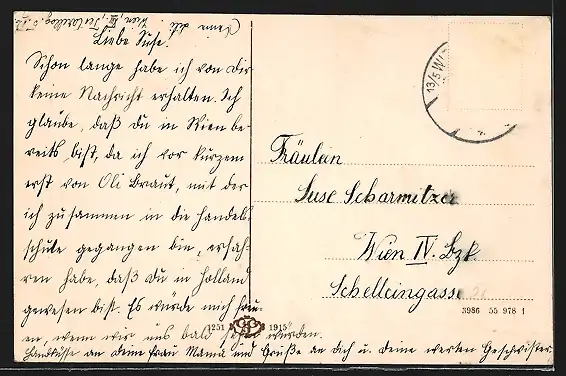 Liebe Suse.
Schon lange habe ich von Dir
keine Nachricht erhalten. Ich
glaube, daß du in Wien be
reits bist, da ich vor kurzem
erst von Oli Braut, mit der
ich zusammen in die Handels
schule gegangen bin, erfah-
ren habe, daß du in Holland
gewesen bist. Es würde mich freu-
en, wenn wir uns bald sehen würden.
Handküsse an deine Frau Mama und Grüße an dich u. deine werten Geschwister.
Deine Lili
Wien, III.,
13/5 WI
Fräulein
Suse Scharmitzer
Wien IV. Bzk
Schelleingasse
3986 55 978 1
1251 1915